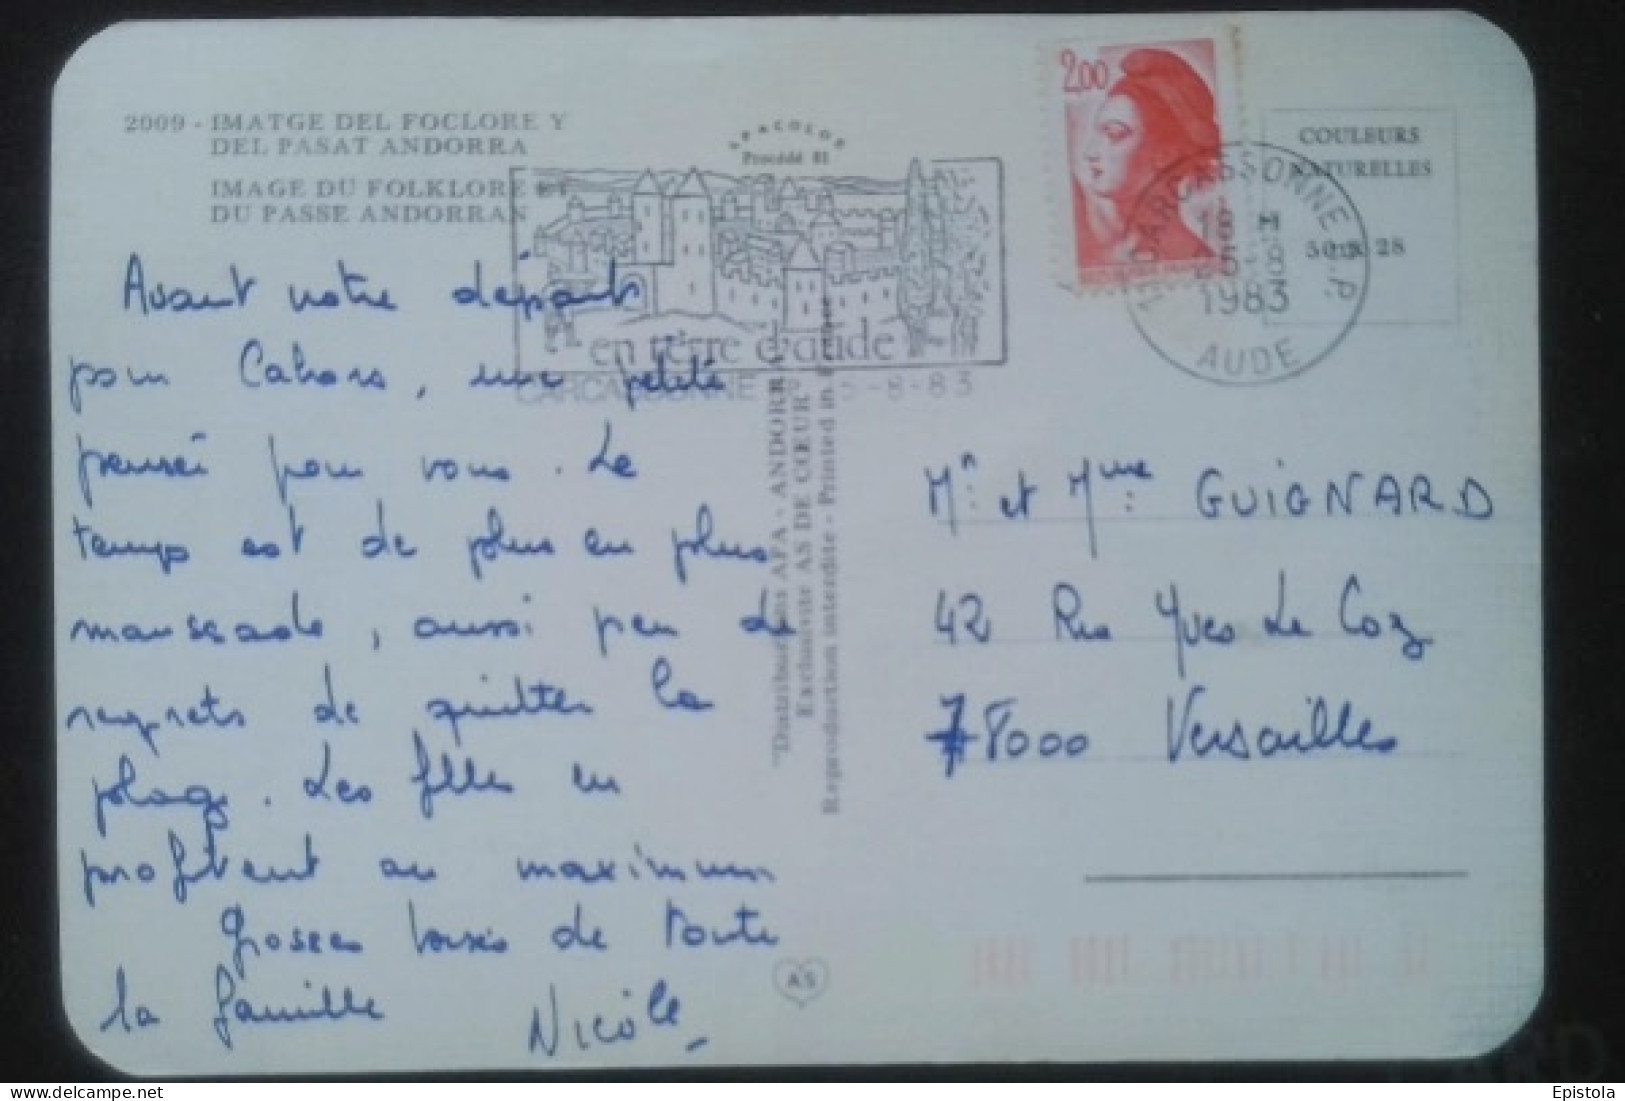 2009 - IMATGE DEL FOCLORE Y
DEL PASAT ANDORRA
IMAGE DU FOLKLORE ET
DU PASSE ANDORRAN
APACOLOR
Procédé 81
en terre d'aude
CARCASSONNE 5-8-83
2,00
11 CARCASSONNE R.P.
18 H
1983
AUDE
COULEURS
NATURELLES
50 x 28
Avant notre départ
pour Cahors, une petite
pensée pour vous. Le
temps est de plus en plus
maussade, aussi peu de
regrets de quitter la
plage. Les filles en
profitent au maximum
Grosses bises de toute
la famille Nicole
"Distributions AFA - ANDORRA
Exclusivité AS DE CŒUR"
Reproduction interdite - Printed in
Mr et Mme GUIGNARD
42 Rue Yves Le Coz
78000 Versailles
AS
Epistola